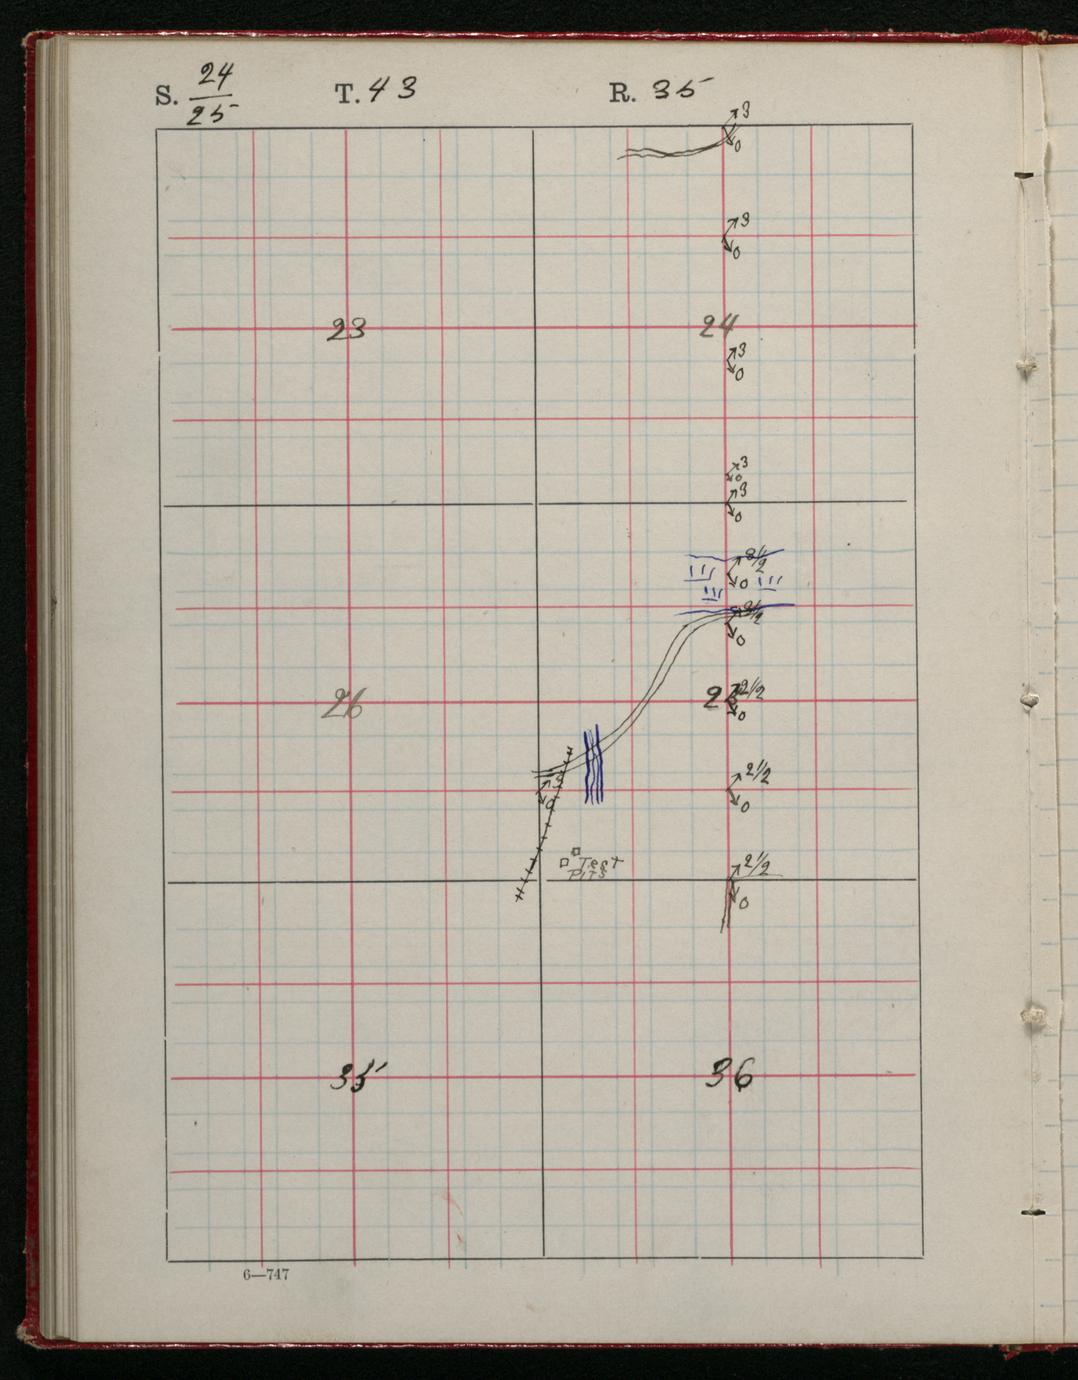 S. 24/25 T. 43 R. 35
3
0
3
0
23 24
3
0
3
0
3
0
3 1/2
0
3 1/2
0
26 25 2 1/2
0
2 1/2
3 0
0
Test
Pits
2 1/2
0
35 36
6—747